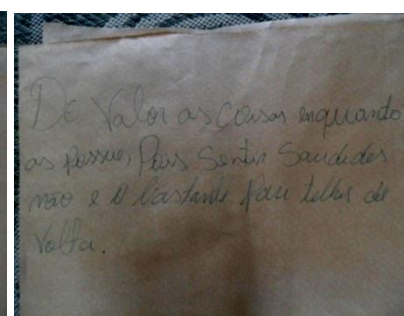 De Valor as Coisas enquanto
as possue, Pois Sentir Saudades
não e o bastante para telhas de
Volta.